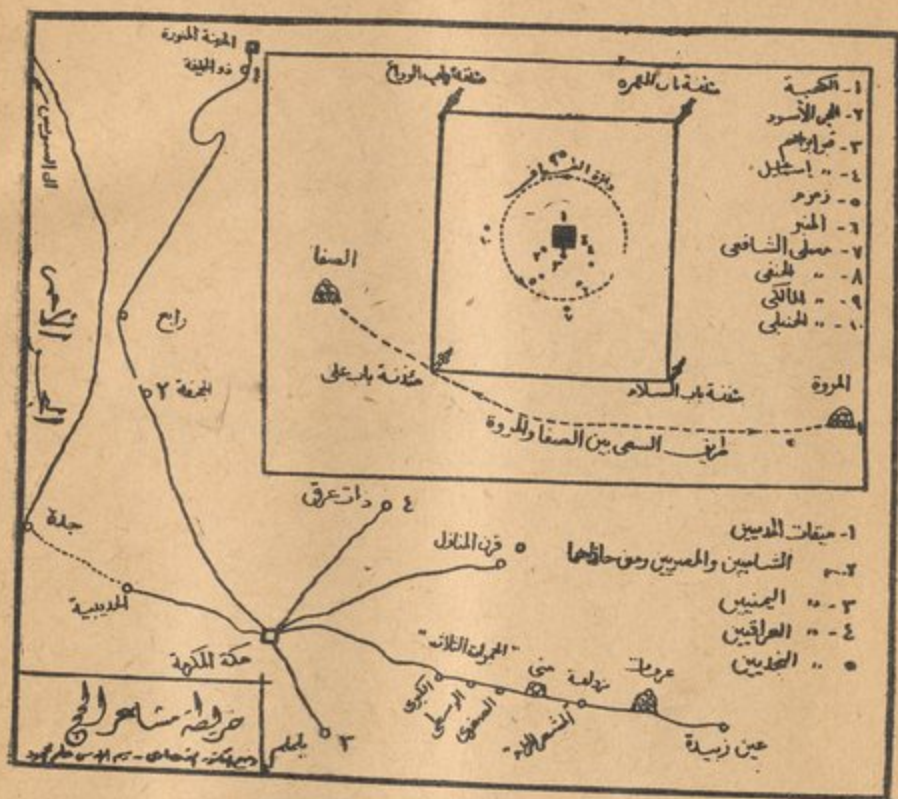 المدينة المنورة
ذو الحليفة
١
الى السويس
البحر الأحمر
رابغ
الجحفة ٢
جدة
الحديبية
مكة المكرمة
ذات عرق ٤
قرن المنازل ٥
يلملم ٣
"الجمرات الثلاث"
الكبرى
الوسطى
الصغرى
منى
مزدلفة
عرفات
عين زبيدة
مئذنة باب الوداع
مئذنة باب العمرة
دائرة المطاف
الصفا
مئذنة باب على
مئذنة باب السلام
المروة
طريق السعى بين الصفا والمروة
١- الكعبة
٢- الحجر الأسود
٣- قبر ابراهيم
٤- " إسماعيل
٥- زمزم
٦- المنبر
٧- مصلى الشافعى
٨- " الحنفى
٩- " المالكى
١٠- " الحنبلى
١- ميقات المدنيين
٢- " الشاميين والمصريين ومن حاذاهما
٣- " اليمنيين
٤- " العراقيين
٥ " النجديين
خريطة مشاعر الحج